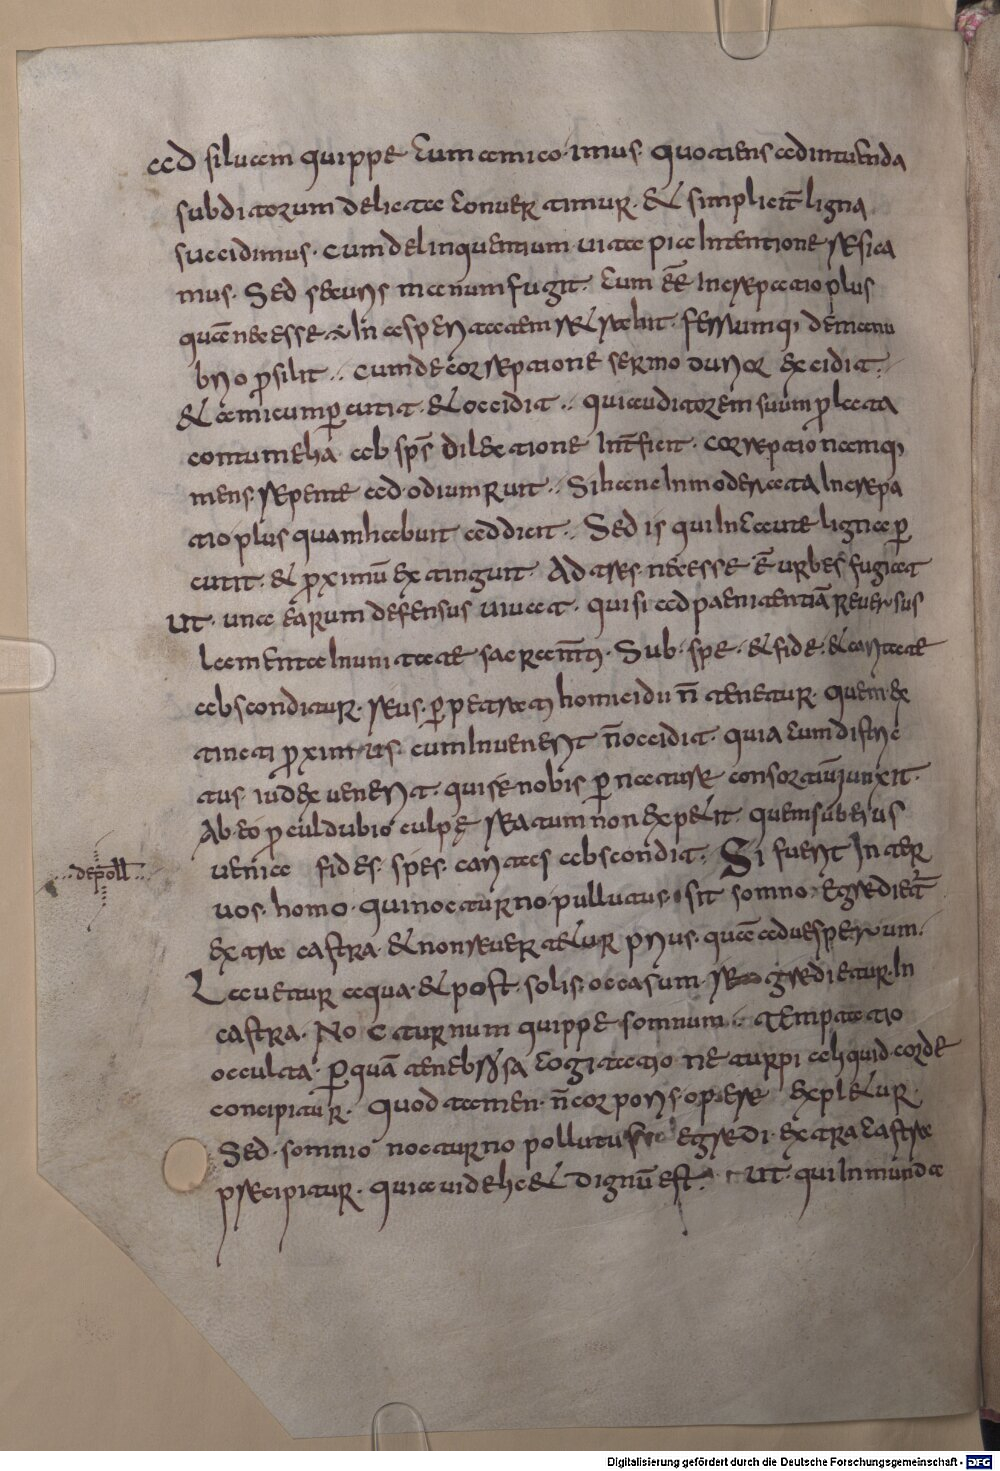 ad siluam quippe cum amico imus· quotiens ad intuenda
subditorum delicta conuertimur· & simplicit̄ ligna
succidimus· cum delinquentium uitta pia intentione reseca
mus· Sed securis manum fugit· cum eē increpatio plus
quā necesse ÷ in asperitatem se trahit· ferrumq; de manu
brio p̄silit·· cum de correptione sermo durior excidit··
& amicum p̄cutit· & occidit·· qui auditorem suum prolata
contumelia ab sp̄s dilectione int̄ficit· correptionem q;
mens repente ad odium ruit·· Si hanc inmoderata increpa
tio plus quam licebuit addicit·· Sed is qui incaute ligna p̄
cutit· & p̄ximū extinguit· Ad tres necesse ē urbes fugiat
ut· una earum defensus uiuat· qui si ad paenitentiā reuersus
lamenta in unitate sacramt̄i· Sub· spe· & fide· & caritate
absconditur· reus· p̄petrati homicidii n̄ tenetur· quem ex
tincti p̄ximus· cum inuenerit n̄ occidit· quia cum distric
tus iudex uenerit· qui se nobis p̄ nature consortiū iunxit·
Ab eo p̄culdubio culpę reatum non expetit· quem sub eius
uenia fides· spes· caritas abscondit· Si fuerit inter
··depoll̄··
uos· homo· qui nocturno pullutus sit somno· egrediet̄
extra castra· & non reuertetur prius· quā ad uesperum·
Lauetur aqua· & post· solis· occasum· regredietur· in
castra· Nocturnum quippe somnum·· temptatio
occulta· p̄ quā tenebrosa cogitatio ne turpi aliquid· corde
concipitur· quod tamen· n̄ corporis· opere expletur·
Sed· somnio nocturno pollutus egredi· extra castra
precipitur· quia uidelic& dignū est· ut· qui inmunda
Digitalisierung gefördert durch die Deutsche Forschungsgemeinschaft - DFG